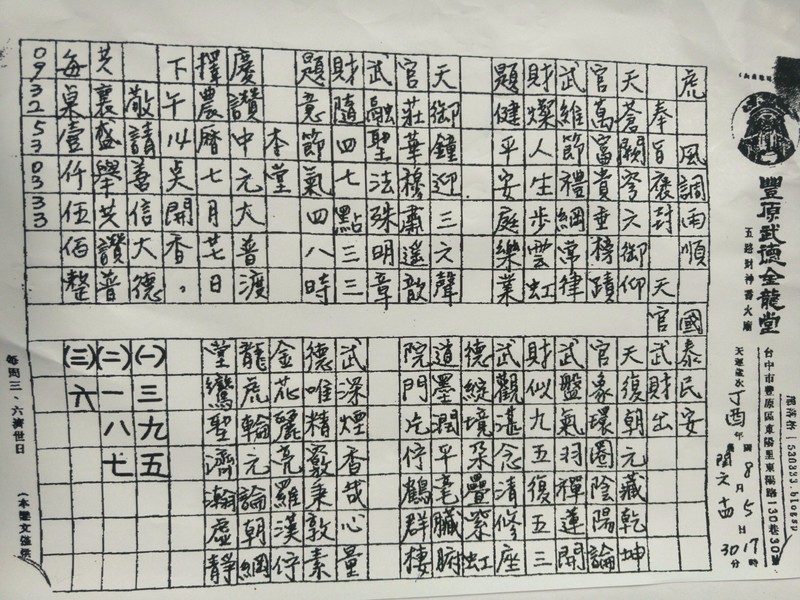 豐原武德金龍堂
五路財神香火廟
台中市豐原區東陽里東陽路130巷30號
天運歲次丁酉年國8月5日17時
30分
虎風調雨順國泰民安
奉旨褒封天官武財出
天蒼闕穹六御仰
官萬富貴垂榜蹟
武維節禮綱常律
財燦人生步雲虹
題健平安庭樂業
天御鐘迎三六聲
官莊華穆肅遙歆
武融聖法殊明章
財隨四七點三三
題意節氣四八時
本堂
慶讚中元大普渡
擇農曆七月廿七日
下午14點開香。
敬請善信大德
共襄盛舉共讚普
每桌壹仟伍佰整
0932530333
天復朝元藏乾坤
官象環圈陰陽論
武盤氣羽禪蓮開
財似九五復五三
武觀湛念清修座
德綻境朵疊縈虹
道墨潤平毫臟腑
院門片佇鶴群棲
武深煙香哉心量
德唯精嚴秉敦素
金花麗亮羅漢佇
龍虎輪元論朝綱
堂鸞聖濟瀚虛靜
(一)三九五
(二)一八七
(三)六
每周三、六濟世日